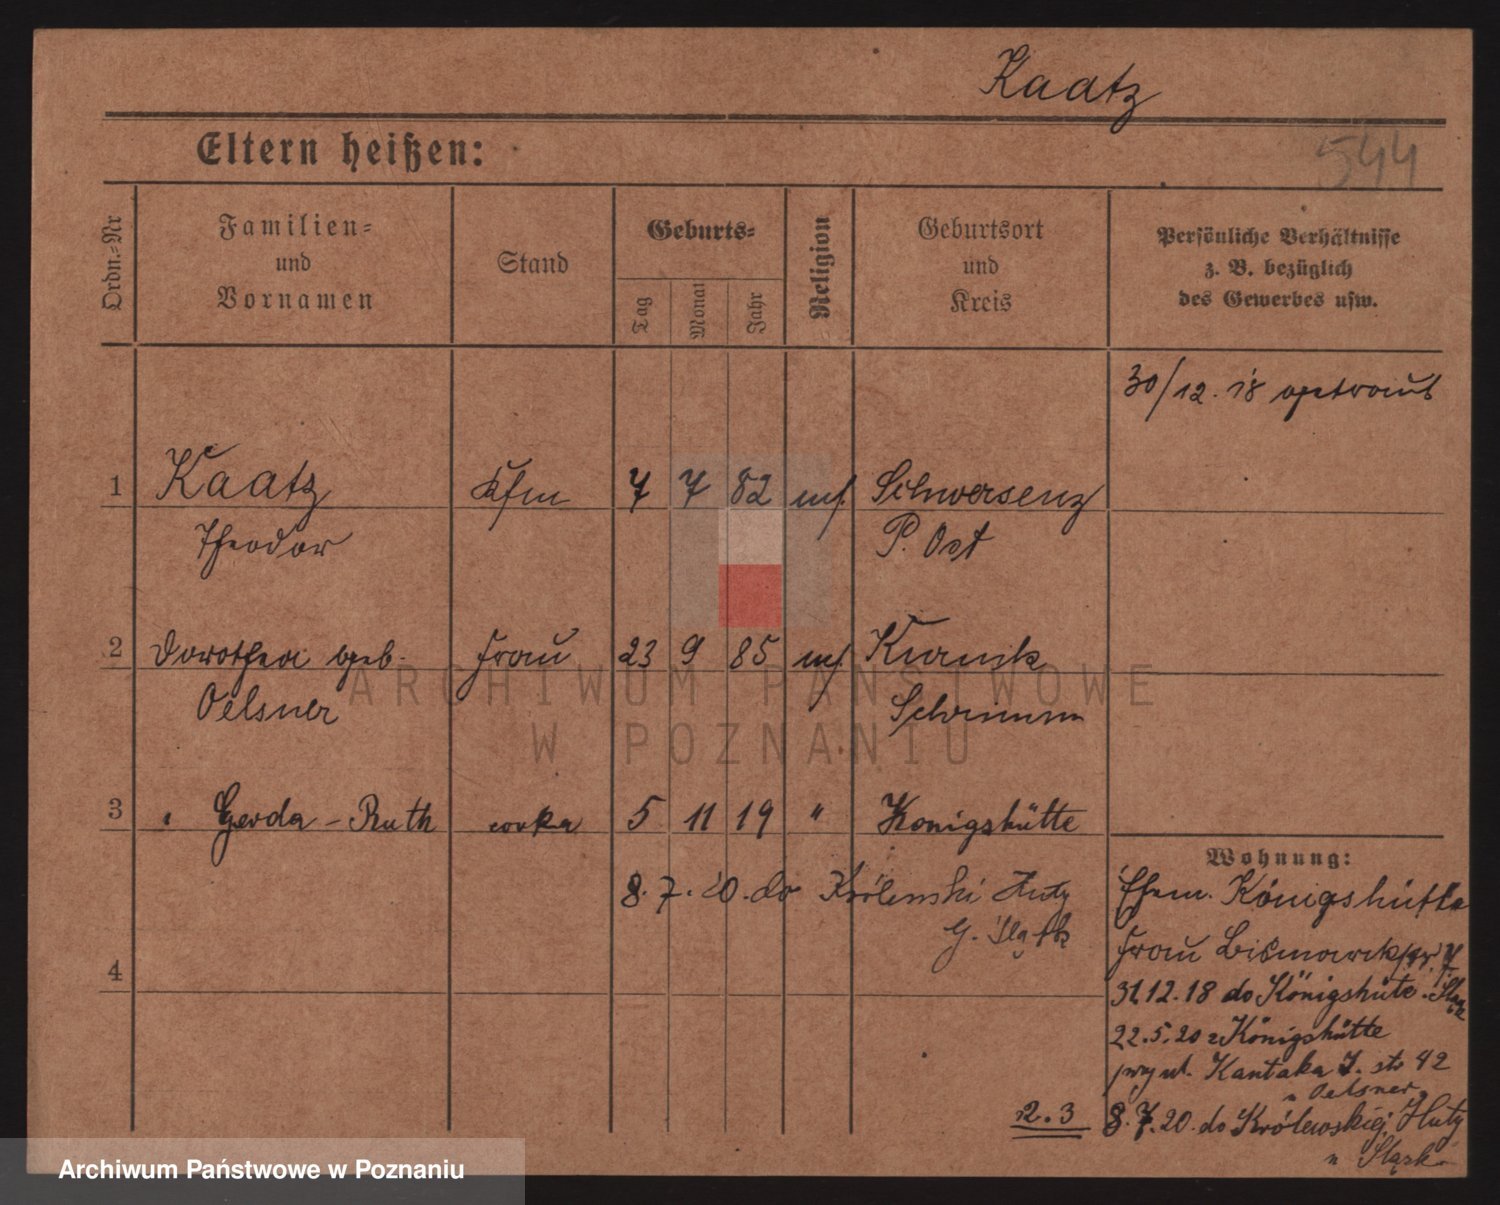 Kaatz
Eltern heißen:
544
Ordn.-Nr
Familien-
und
Vornamen
Stand
Geburts-
Tag
Monat
Jahr
Religion
Geburtsort
und
Kreis
Persönliche Verhältnisse
z. B. bezüglich
des Gewerbes usw.
30/12. 18 getraut
1 Kaatz Kfm 7 7 82 mos. Schwersenz
Theodor P. Ost
2 Dorothea geb. Frau 23 9 85 mos. Kurnik
Oelsner Schrimm
3 " Gerda - Ruth corka 5 11 19 " Königshütte
Wohnung:
8. 7. 20. do Królewski Huty
G. Śląsk
4
Ehem. Königshütte
Frau Bismarckstr. 7
31.12.18 do Königshüte - Śląsk
22.5.20 z Königshütte
przy ul. Kantaka 7. str 42
u Oelsner
8.7.20. do Królewskiej Huty
n Śląsk
2.3
ARCHIWUM PAŃSTWOWE
W POZNANIU
Archiwum Państwowe w Poznaniu